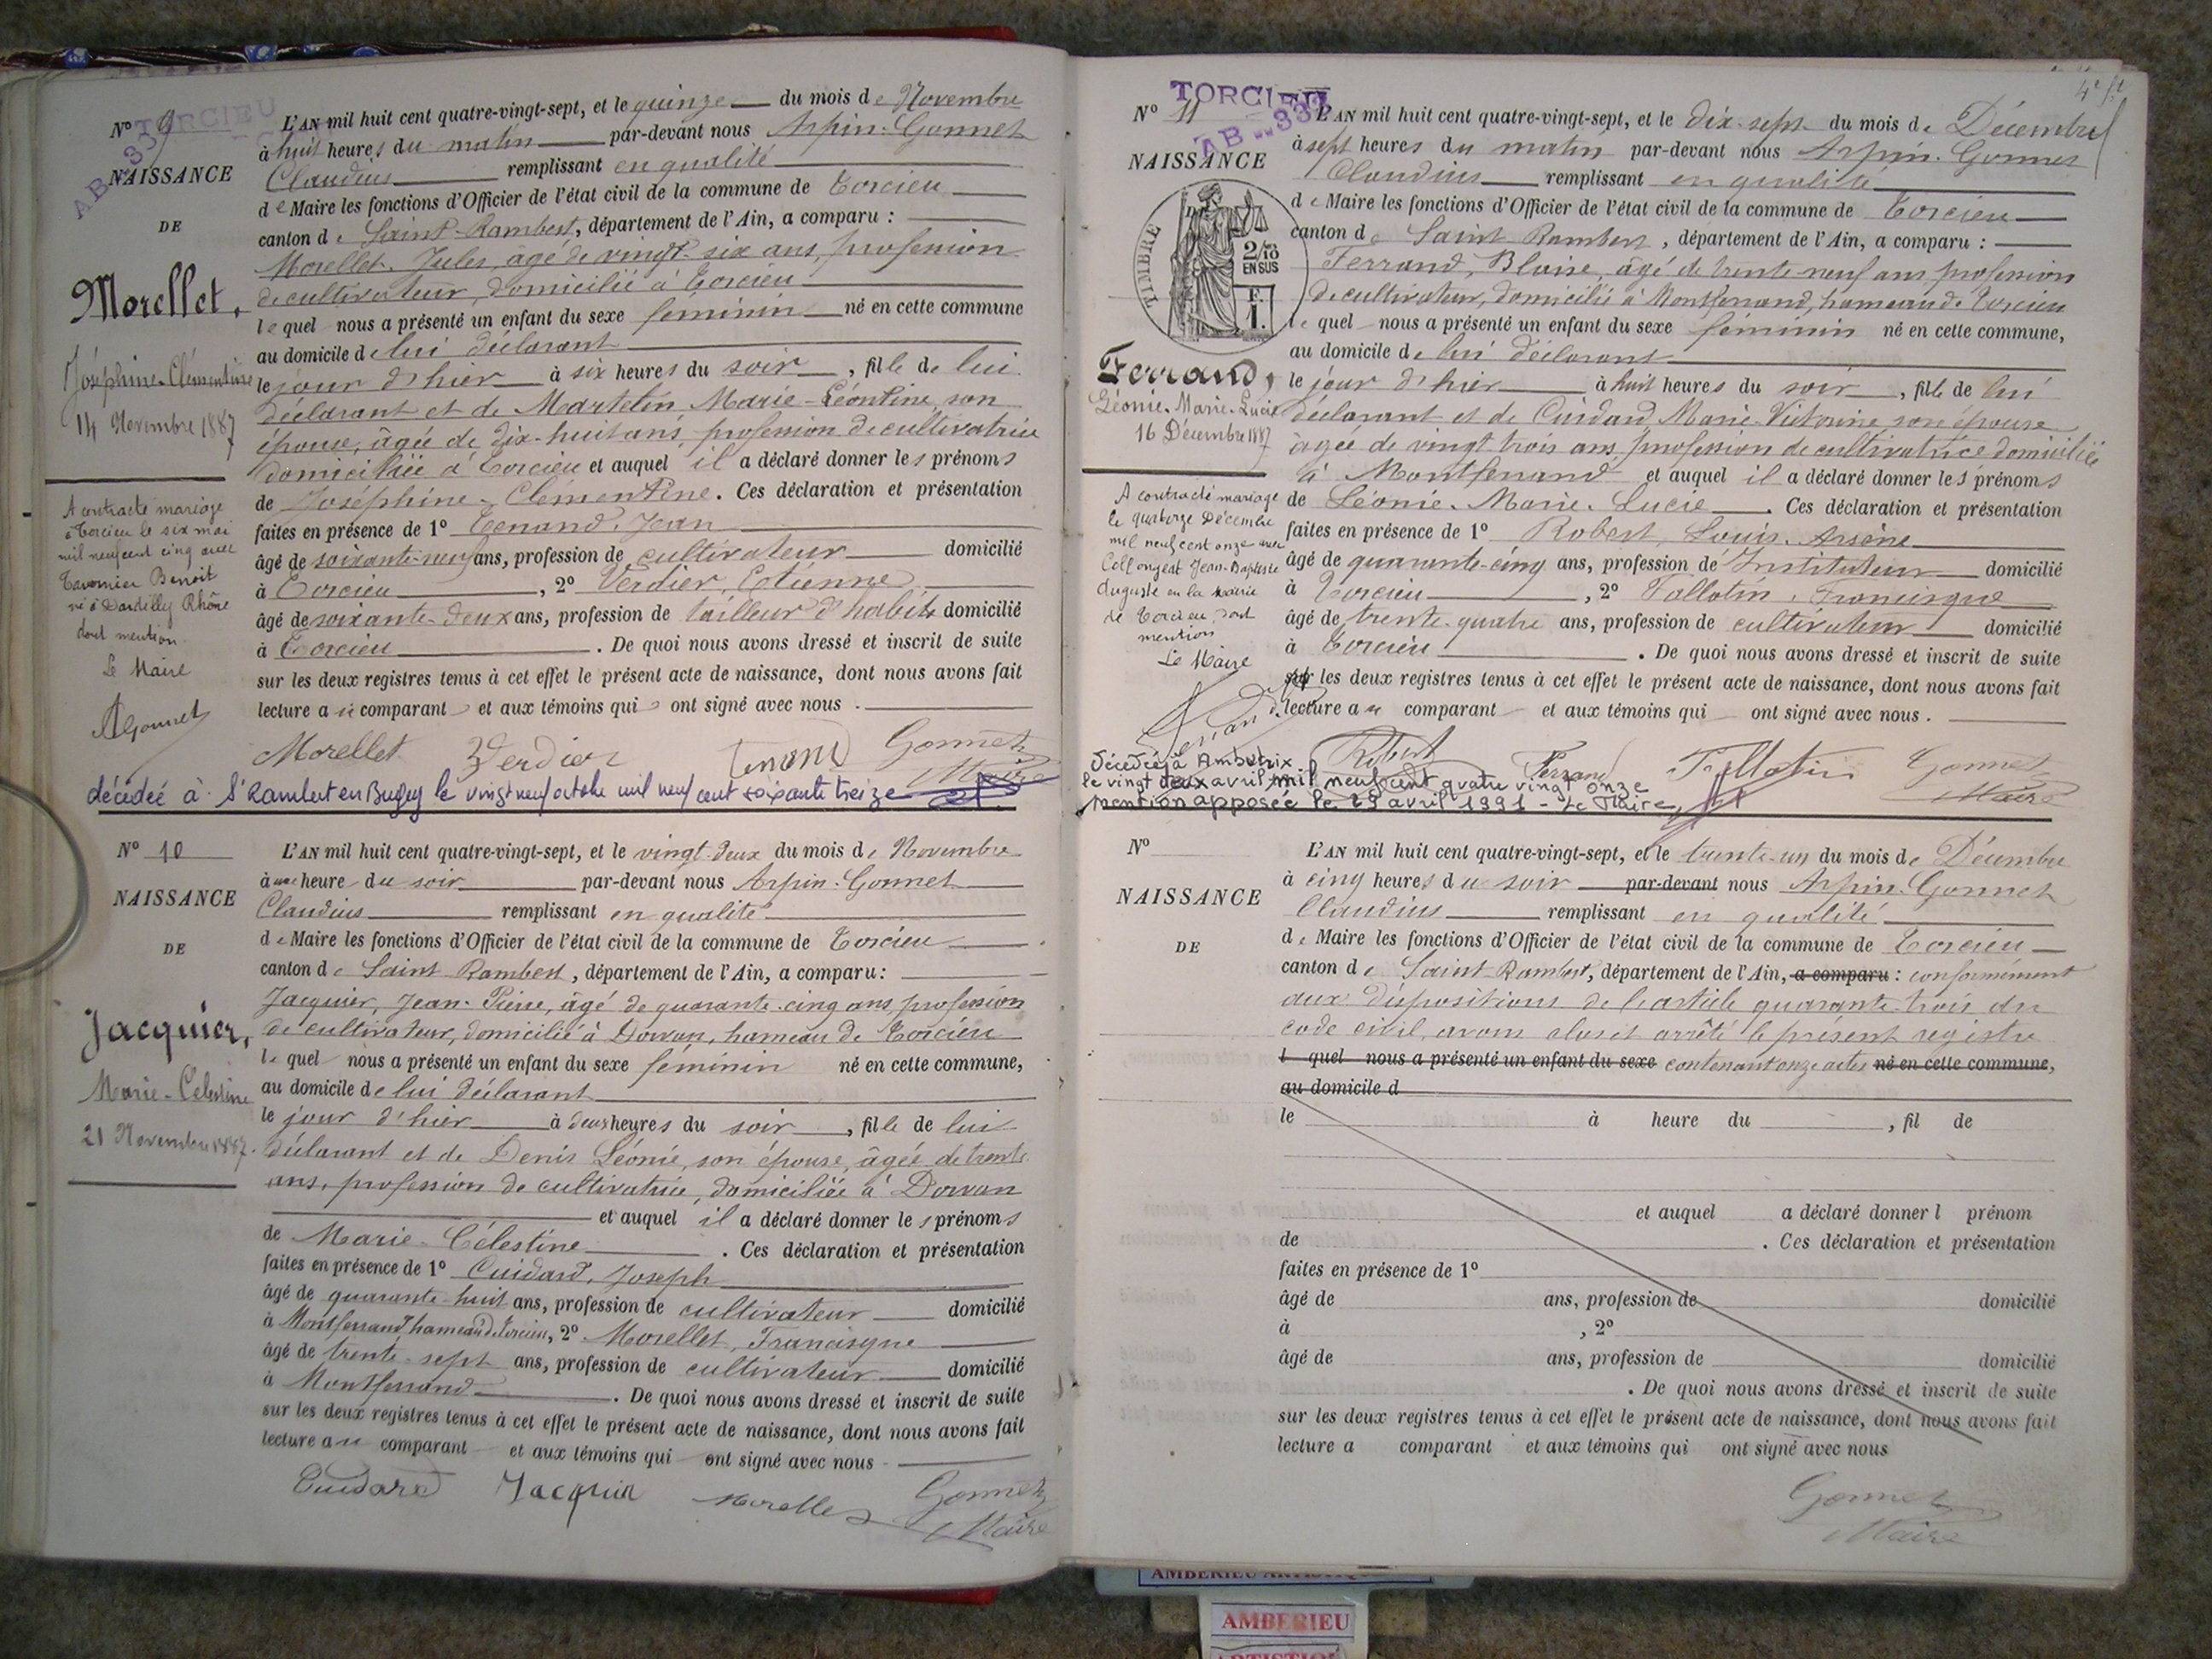 TORCIEU
AB 339
N° 9
NAISSANCE
DE
Morellet,
Joséphine-Clémentine
14 Novembre 1887
A contracté mariage
à Torcieu le six mai
mil neuf cent cinq avec
Tavernier Benoit
né à Dardilly Rhône
dont mention
Le Maire
AGonnet
L'AN mil huit cent quatre-vingt-sept, et le quinze du mois de Novembre
à huit heures du matin par-devant nous Arpin-Gonnet
Claudius remplissant en qualité
de Maire les fonctions d'Officier de l'état civil de la commune de Torcieu
canton de Saint-Rambert, département de l'Ain, a comparu :
Morellet Jules, âgé de vingt-six ans, profession
de cultivateur, domicilié à Torcieu
lequel nous a présenté un enfant du sexe féminin né en cette commune
au domicile de lui déclarant
le jour d'hier à six heures du soir, fille de lui
déclarant et de Martelin Marie-Léontine, son
épouse, âgée de dix-huit ans, profession de cultivatrice
domiciliée à Torcieu et auquel il a déclaré donner les prénoms
de Joséphine-Clémentine. Ces déclaration et présentation
faites en présence de 1° Tenand, Jean
âgé de soixante-neuf ans, profession de cultivateur domicilié
à Torcieu, 2° Verdier, Etienne
âgé de soixante-deux ans, profession de tailleur d'habits domicilié
à Torcieu. De quoi nous avons dressé et inscrit de suite
sur les deux registres tenus à cet effet le présent acte de naissance, dont nous avons fait
lecture au comparant et aux témoins qui ont signé avec nous.
Morellet Verdier Tenand Gonnet
Maire
décédée à St Rambert en Bugey le vingt neuf octobre mil neuf cent soixante treize
N° 10
NAISSANCE
DE
Jacquier,
Marie-Célestine
21 Novembre 1887.
L'AN mil huit cent quatre-vingt-sept, et le vingt-deux du mois de Novembre
à une heure du soir par-devant nous Arpin-Gonnet
Claudius remplissant en qualité
de Maire les fonctions d'Officier de l'état civil de la commune de Torcieu
canton de Saint Rambert, département de l'Ain, a comparu :
Jacquier, Jean-Pierre, âgé de quarante-cinq ans, profession
de cultivateur, domicilié à Dorvan, hameau de Torcieu
lequel nous a présenté un enfant du sexe féminin né en cette commune,
au domicile de lui déclarant
le jour d'hier à deux heures du soir, fille de lui
déclarant et de Denis Léonie, son épouse, âgée de trente
ans, profession de cultivatrice, domiciliée à Dorvan
et auquel il a déclaré donner les prénoms
de Marie-Célestine. Ces déclaration et présentation
faites en présence de 1° Cuidard, Joseph
âgé de quarante-huit ans, profession de cultivateur domicilié
à Montferrand hameau de Torcieu, 2° Morellet, Francisque
âgé de trente-sept ans, profession de cultivateur domicilié
à Montferrand. De quoi nous avons dressé et inscrit de suite
sur les deux registres tenus à cet effet le présent acte de naissance, dont nous avons fait
lecture au comparant et aux témoins qui ont signé avec nous
Cuidard Jacquier Morellet Gonnet
Maire
TORCIEU
AB 339
N° 11
NAISSANCE
TIMBRE
2/10
EN SUS
F.
1.
Ferrand,
Léonie-Marie-Lucie
16 Décembre 1887
A contracté mariage
le quatorze Décembre
mil neuf cent onze avec
Collongeat Jean-Baptiste
Auguste en la mairie
de Torcieu, dont
mention
Le Maire
L'AN mil huit cent quatre-vingt-sept, et le dix-sept du mois de Décembre
à sept heures du matin par-devant nous Arpin-Gonnet
Claudius remplissant en qualité
de Maire les fonctions d'Officier de l'état civil de la commune de Torcieu
canton de Saint Rambert, département de l'Ain, a comparu :
Ferrand, Blaise, âgé de trente-neuf ans profession
de cultivateur, domicilié à Montferrand, hameau de Torcieu
lequel nous a présenté un enfant du sexe féminin né en cette commune,
au domicile de lui déclarant
le jour d'hier à huit heures du soir, fille de lui
déclarant et de Cuidard, Marie-Victorine, son épouse
âgée de vingt-trois ans, profession de cultivatrice domiciliée
à Montferrand et auquel il a déclaré donner les prénoms
de Léonie-Marie-Lucie. Ces déclaration et présentation
faites en présence de 1° Robert, Louis-Arsène
âgé de quarante-cinq ans, profession de Instituteur domicilié
à Torcieu, 2° Tollotin, Francisque
âgé de trente-quatre ans, profession de cultivateur domicilié
à Torcieu. De quoi nous avons dressé et inscrit de suite
sur les deux registres tenus à cet effet le présent acte de naissance, dont nous avons fait
lecture au comparant et aux témoins qui ont signé avec nous.
Robert Ferrand Tollotin Gonnet
Maire
Décédée à Ambutrix
le vingt deux avril mil neuf cent quatre vingt onze
mention apposée le 29 avril 1991 - Le Maire,
N°
NAISSANCE
DE
L'AN mil huit cent quatre-vingt-sept, et le trente-un du mois de Décembre
à cinq heures du soir par-devant nous Arpin-Gonnet
Claudius remplissant en qualité
de Maire les fonctions d'Officier de l'état civil de la commune de Torcieu
canton de Saint-Rambert, département de l'Ain, a comparu : conformément
aux dispositions de l'article quarante-trois du
code civil, avons clos et arrêté le présent registre
l quel nous a présenté un enfant du sexe contenant onze actes né en cette commune,
au domicile d
le à heure du , fil de
et auquel a déclaré donner l prénom
de . Ces déclaration et présentation
faites en présence de 1°
âgé de ans, profession de domicilié
à , 2°
âgé de ans, profession de domicilié
à . De quoi nous avons dressé et inscrit de suite
sur les deux registres tenus à cet effet le présent acte de naissance, dont nous avons fait
lecture a comparant et aux témoins qui ont signé avec nous
Gonnet
Maire
AMBERIEU
AMBERIEU
ARTISTIQUE